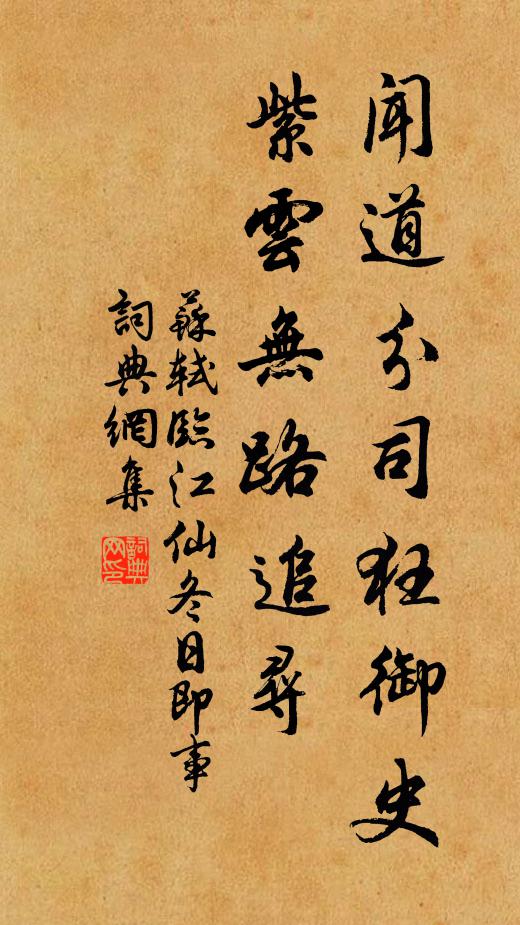 聞道分司狂御史
紫雲無路追尋
蘇軾臨江仙冬日即事
詞典網集
詞典网印